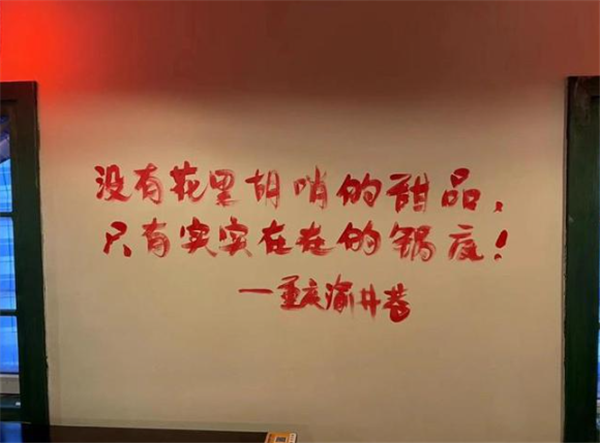 没有花里胡哨的甜品,
只有实实在在的锅底!
一重庆渝井巷